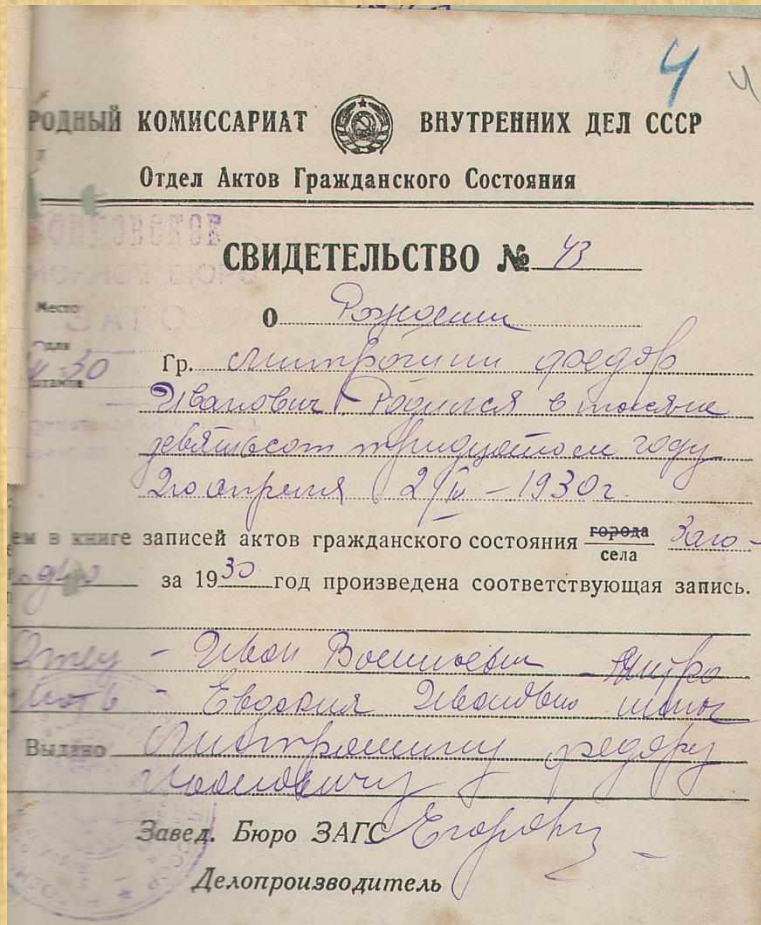 4 4
РОДНЫЙ КОМИССАРИАТ ВНУТРЕННИХ ДЕЛ СССР
Отдел Актов Гражданского Состояния
СВИДЕТЕЛЬСТВО № 43
Место
для
штампа
ЗАГС
30
О Рождении
Гр. Митрошин Федор
Иванович Родился в тысяча
девятьсот тридцатом году
2го апреля 2/IV – 1930 г.
ем в книге записей актов гражданского состояния города
села Заго-
за 1930 год произведена соответствующая запись.
Отец - Иван Васильевич Митро
Мать - Евдокия Ивановна шины
Выдано Митрошину Федору
Ивановичу
Завед. Бюро ЗАГС
Делопроизводитель